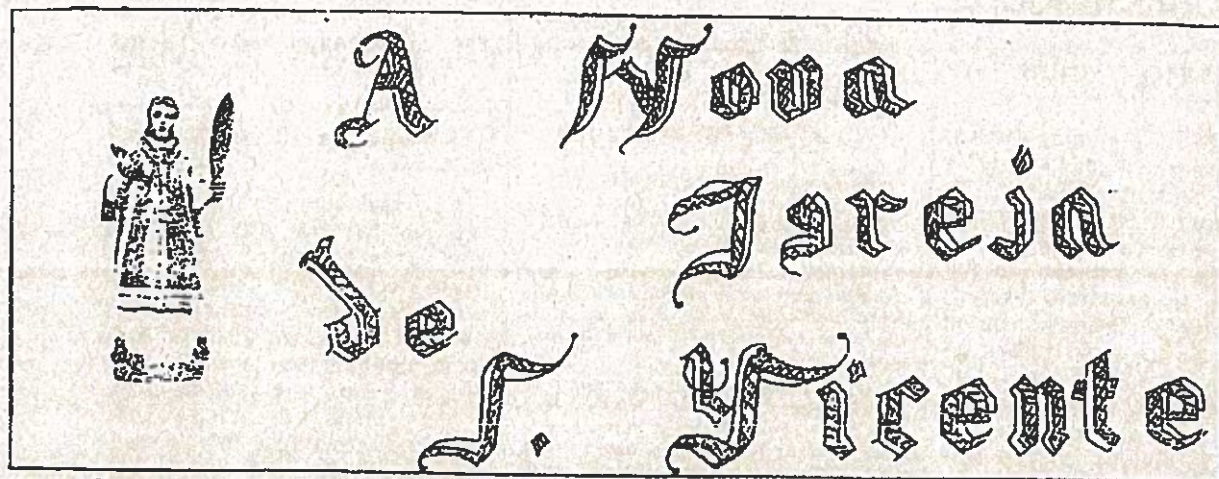 A Nova
Igreja
de
S. Vicente